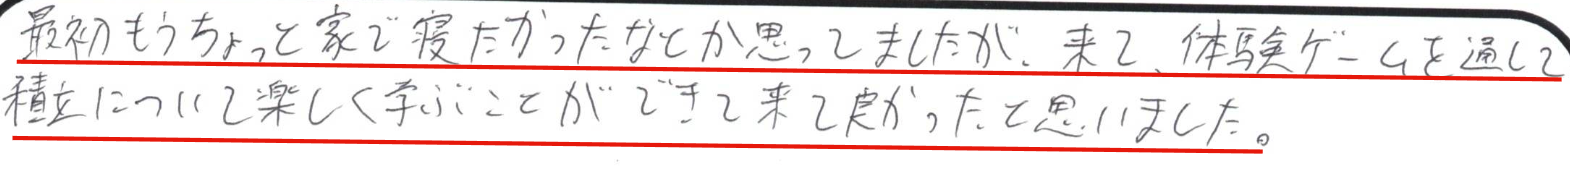 最初もうちょっと家で寝たかったなとか思ってましたが、来て、体験ゲームを通して
積立について楽しく学ぶことができて来て良かったと思いました。